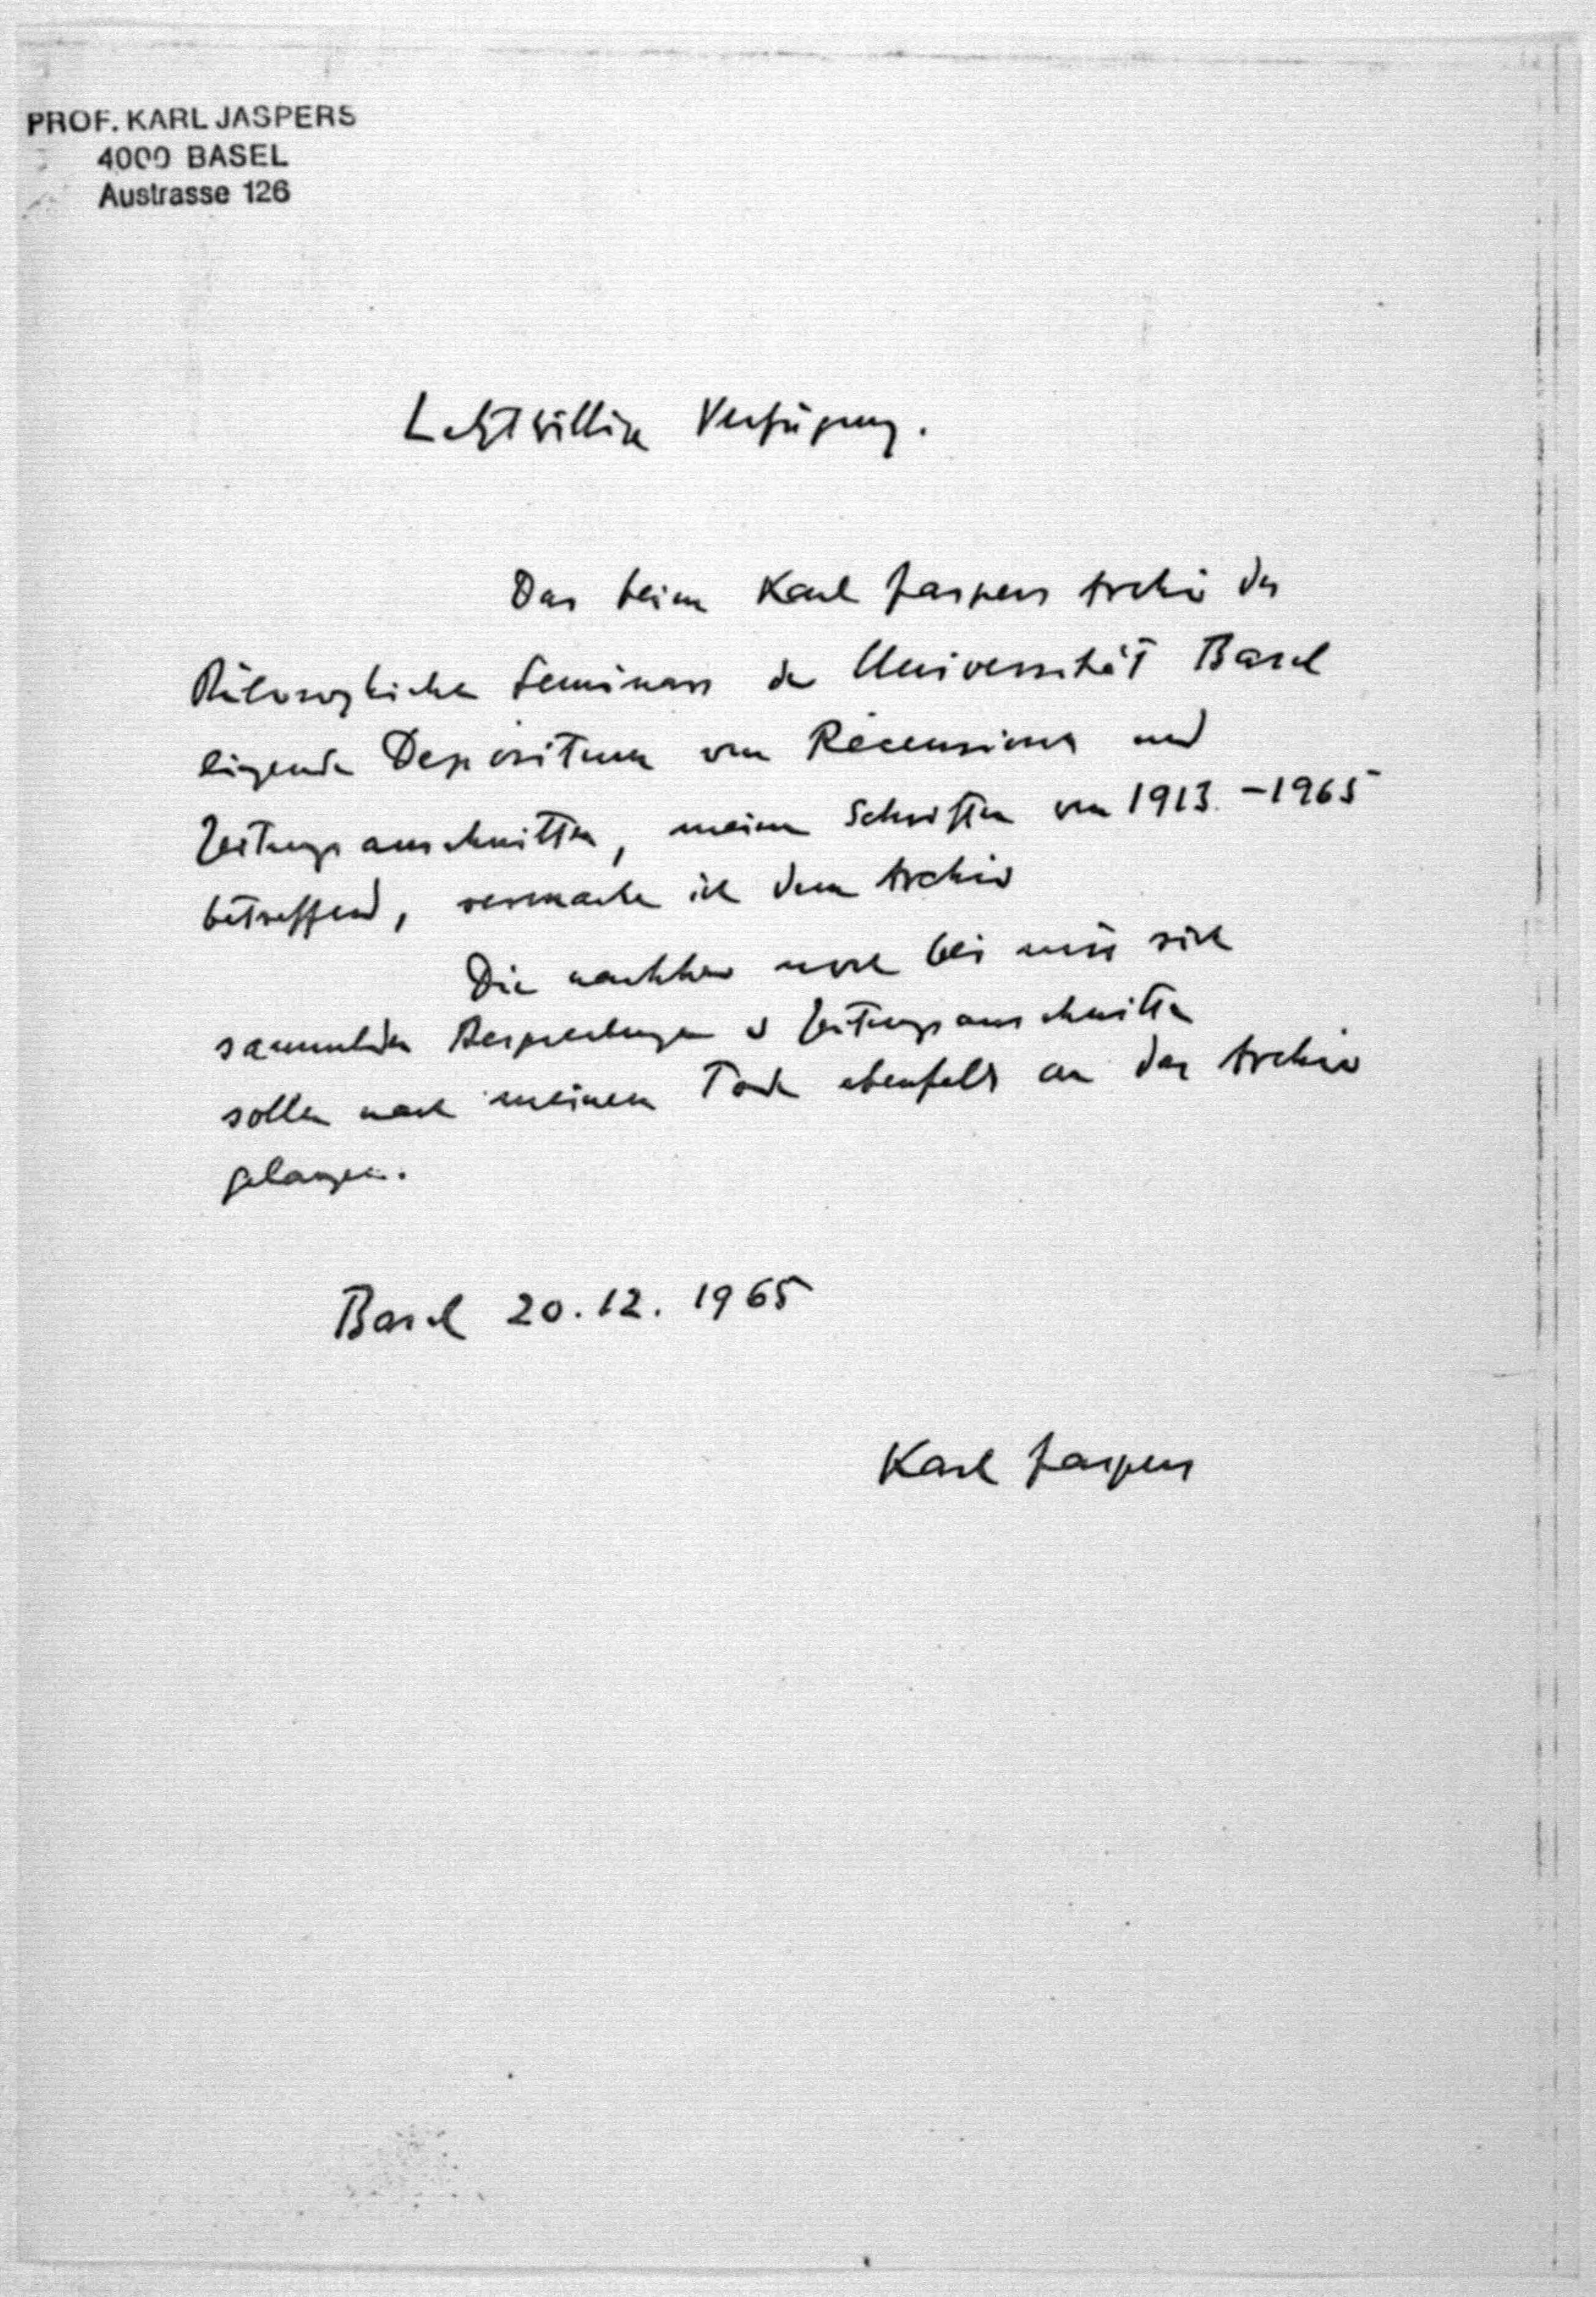 PROF. KARL JASPERS
4000 BASEL
Austrasse 126
Letztwillige Verfügung.
Das beim Karl Jaspers Archiv des
Philosophischen Seminars der Universität Basel
liegende Depositum von Recensionen und
Zeitungsausschnitten, meine Schriften von 1913-1965
betreffend, vermache ich dem Archiv
Die nachher noch bei mir sich
sammelnden Besprechungen u Zeitungsausschnitte
sollen nach meinem Tode ebenfalls an das Archiv
gelangen.
Basel 20.12.1965
Karl Jaspers